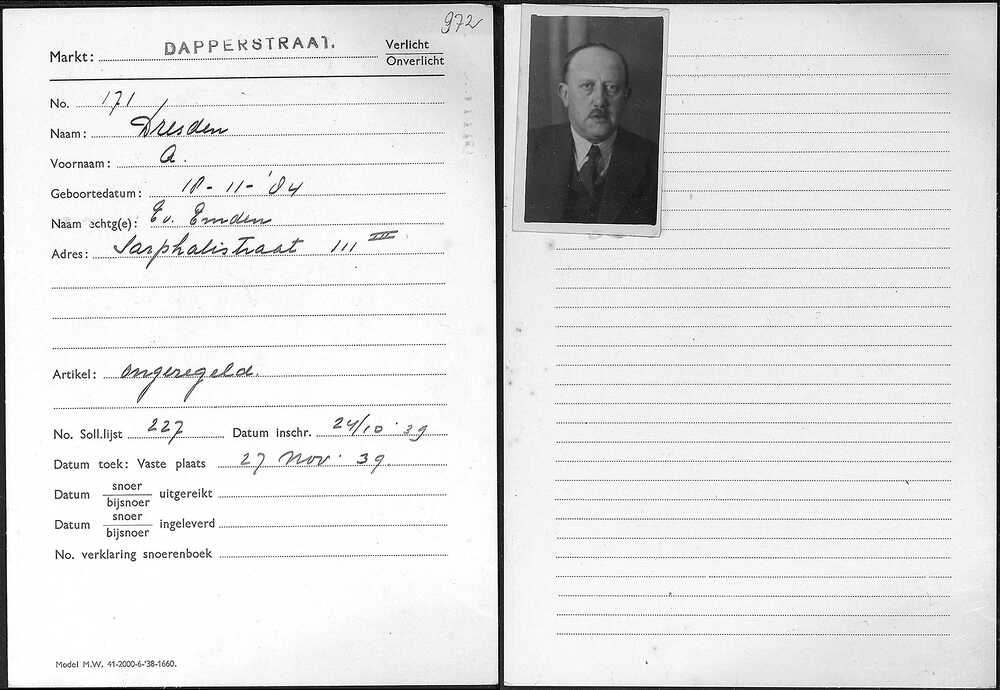 972
Markt: DAPPERSTRAAT.
Verlicht
Onverlicht
No. 171
Naam: Dresden
Voornaam: A.
Geboortedatum: 18-11-'84
Naam echtg(e): E v. Emden
Adres: Sarphatistraat 111 III
Artikel: ongeregelde.
No. Soll.lijst 227 Datum inschr. 24/10 '39
Datum toek: Vaste plaats 27 Nov. 39.
Datum snoer/bijsnoer uitgereikt
Datum snoer/bijsnoer ingeleverd
No. verklaring snoerenboek
Model M.W. 41-2000-6-'38-1660.